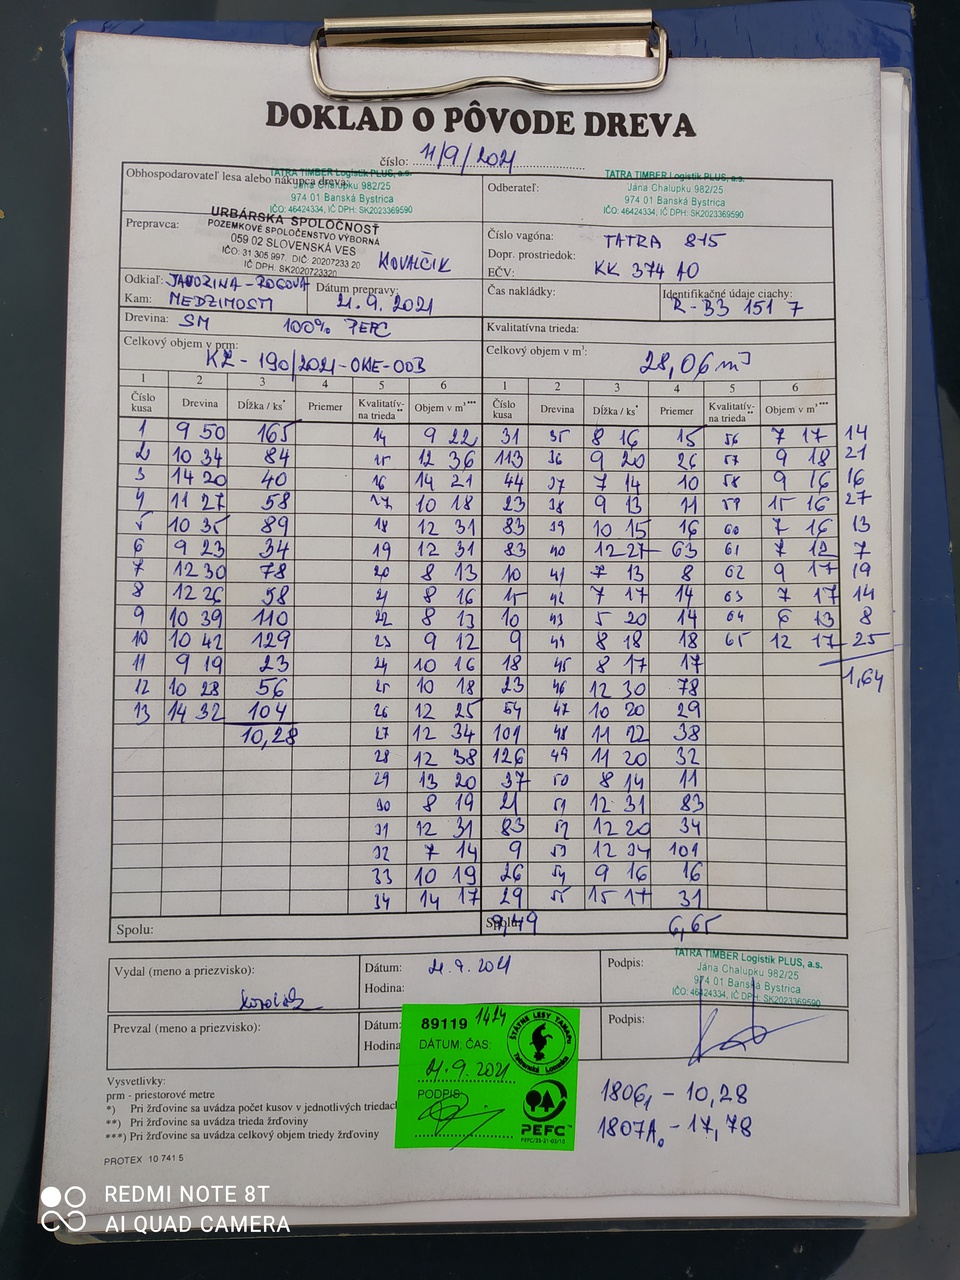 DOKLAD O PÔVODE DREVA
číslo: 11/9/2021
Obhospodarovateľ lesa alebo nákupca dreva:
TATRA TIMBER Logistik PLUS, a.s.
Jána Chalupku 982/25
974 01 Banská Bystrica
IČO: 46424334, IČ DPH: SK2023369590
Odberateľ:
TATRA TIMBER Logistik PLUS, a.s.
Jána Chalupku 982/25
974 01 Banská Bystrica
IČO: 46424334, IČ DPH: SK2023369590
Prepravca:
URBÁRSKA SPOLOČNOSŤ
POZEMKOVÉ SPOLOČENSTVO VÝBORNÁ
059 02 SLOVENSKÁ VES
IČO: 31 305 997, DIČ: 20207233 20
IČ DPH: SK2020723320
KOVALČIK
Číslo vagóna: TATRA 815
Dopr. prostriedok:
EČV: KK 374 AO
Odkiaľ: JAVORINA - ROGOVÁ
Kam: MEDZIMOSTÍ
Dátum prepravy:
21.9.2021
Čas nakládky:
Identifikačné údaje ciachy:
R-BB 151 7
Drevina: SM 100% PEFC
Kvalitatívna trieda:
Celkový objem v prm:
KZ - 190/2021-OKIE-OOB
Celkový objem v m³:
28,06 m³
1 2 3 4 5 6 1 2 3 4 5 6
Číslo kusa Drevina Dĺžka / ks* Priemer Kvalitatív- na trieda** Objem v m³*** Číslo kusa Drevina Dĺžka / ks* Priemer Kvalitatív- na trieda** Objem v m³***
1 9 50 165 14 9 22 31 35 8 16 15 56 7 17 14
2 10 34 84 15 12 36 113 36 9 20 26 57 9 18 21
3 14 20 40 16 14 21 44 37 7 14 10 58 9 16 16
4 11 27 58 17 10 18 23 38 9 13 11 59 15 16 27
5 10 35 89 18 12 31 83 39 10 15 16 60 7 16 13
6 9 23 34 19 12 31 83 40 12 27 63 61 7 12 7
7 12 30 78 20 8 13 10 41 7 13 8 62 9 17 19
8 12 26 58 21 8 16 15 42 7 17 14 63 7 17 14
9 10 39 110 22 8 13 10 43 5 20 14 64 6 13 8
10 10 42 129 23 9 12 9 44 8 18 18 65 12 17 25
11 9 19 23 24 10 16 18 45 8 17 17 1,64
12 10 28 56 25 10 18 23 46 12 30 78
13 14 32 104 26 12 25 54 47 10 20 29
10,28 27 12 34 101 48 11 22 38
28 12 38 126 49 11 20 32
29 13 20 37 50 8 14 11
30 8 19 21 51 12 31 83
31 12 31 83 52 12 20 34
32 7 14 9 53 12 34 101
33 10 19 26 54 9 16 16
34 14 17 29 55 15 17 31
Spolu: Spolu: 9,49 6,65
Vydal (meno a priezvisko):
Dátum: 21.9.2021
Hodina:
Podpis:
TATRA TIMBER Logistik PLUS, a.s.
Jána Chalupku 982/25
974 01 Banská Bystrica
IČO: 46424334, IČ DPH: SK2023369590
Prevzal (meno a priezvisko):
Dátum:
Hodina
Podpis:
89119 1424
DÁTUM, ČAS:
21.9.2021
PODPIS:
ŠTÁTNE LESY TANAPu
Tatranská Lomnica
PEFC
Vysvetlivky:
prm - priestorové metre
*) Pri žrďovine sa uvádza počet kusov v jednotlivých triedach
**) Pri žrďovine sa uvádza trieda žrďoviny
***) Pri žrďovine sa uvádza celkový objem triedy žrďoviny
1806, - 10,28
1807A. - 17,78
PROTEX 10 741 5
REDMI NOTE 8T
AI QUAD CAMERA